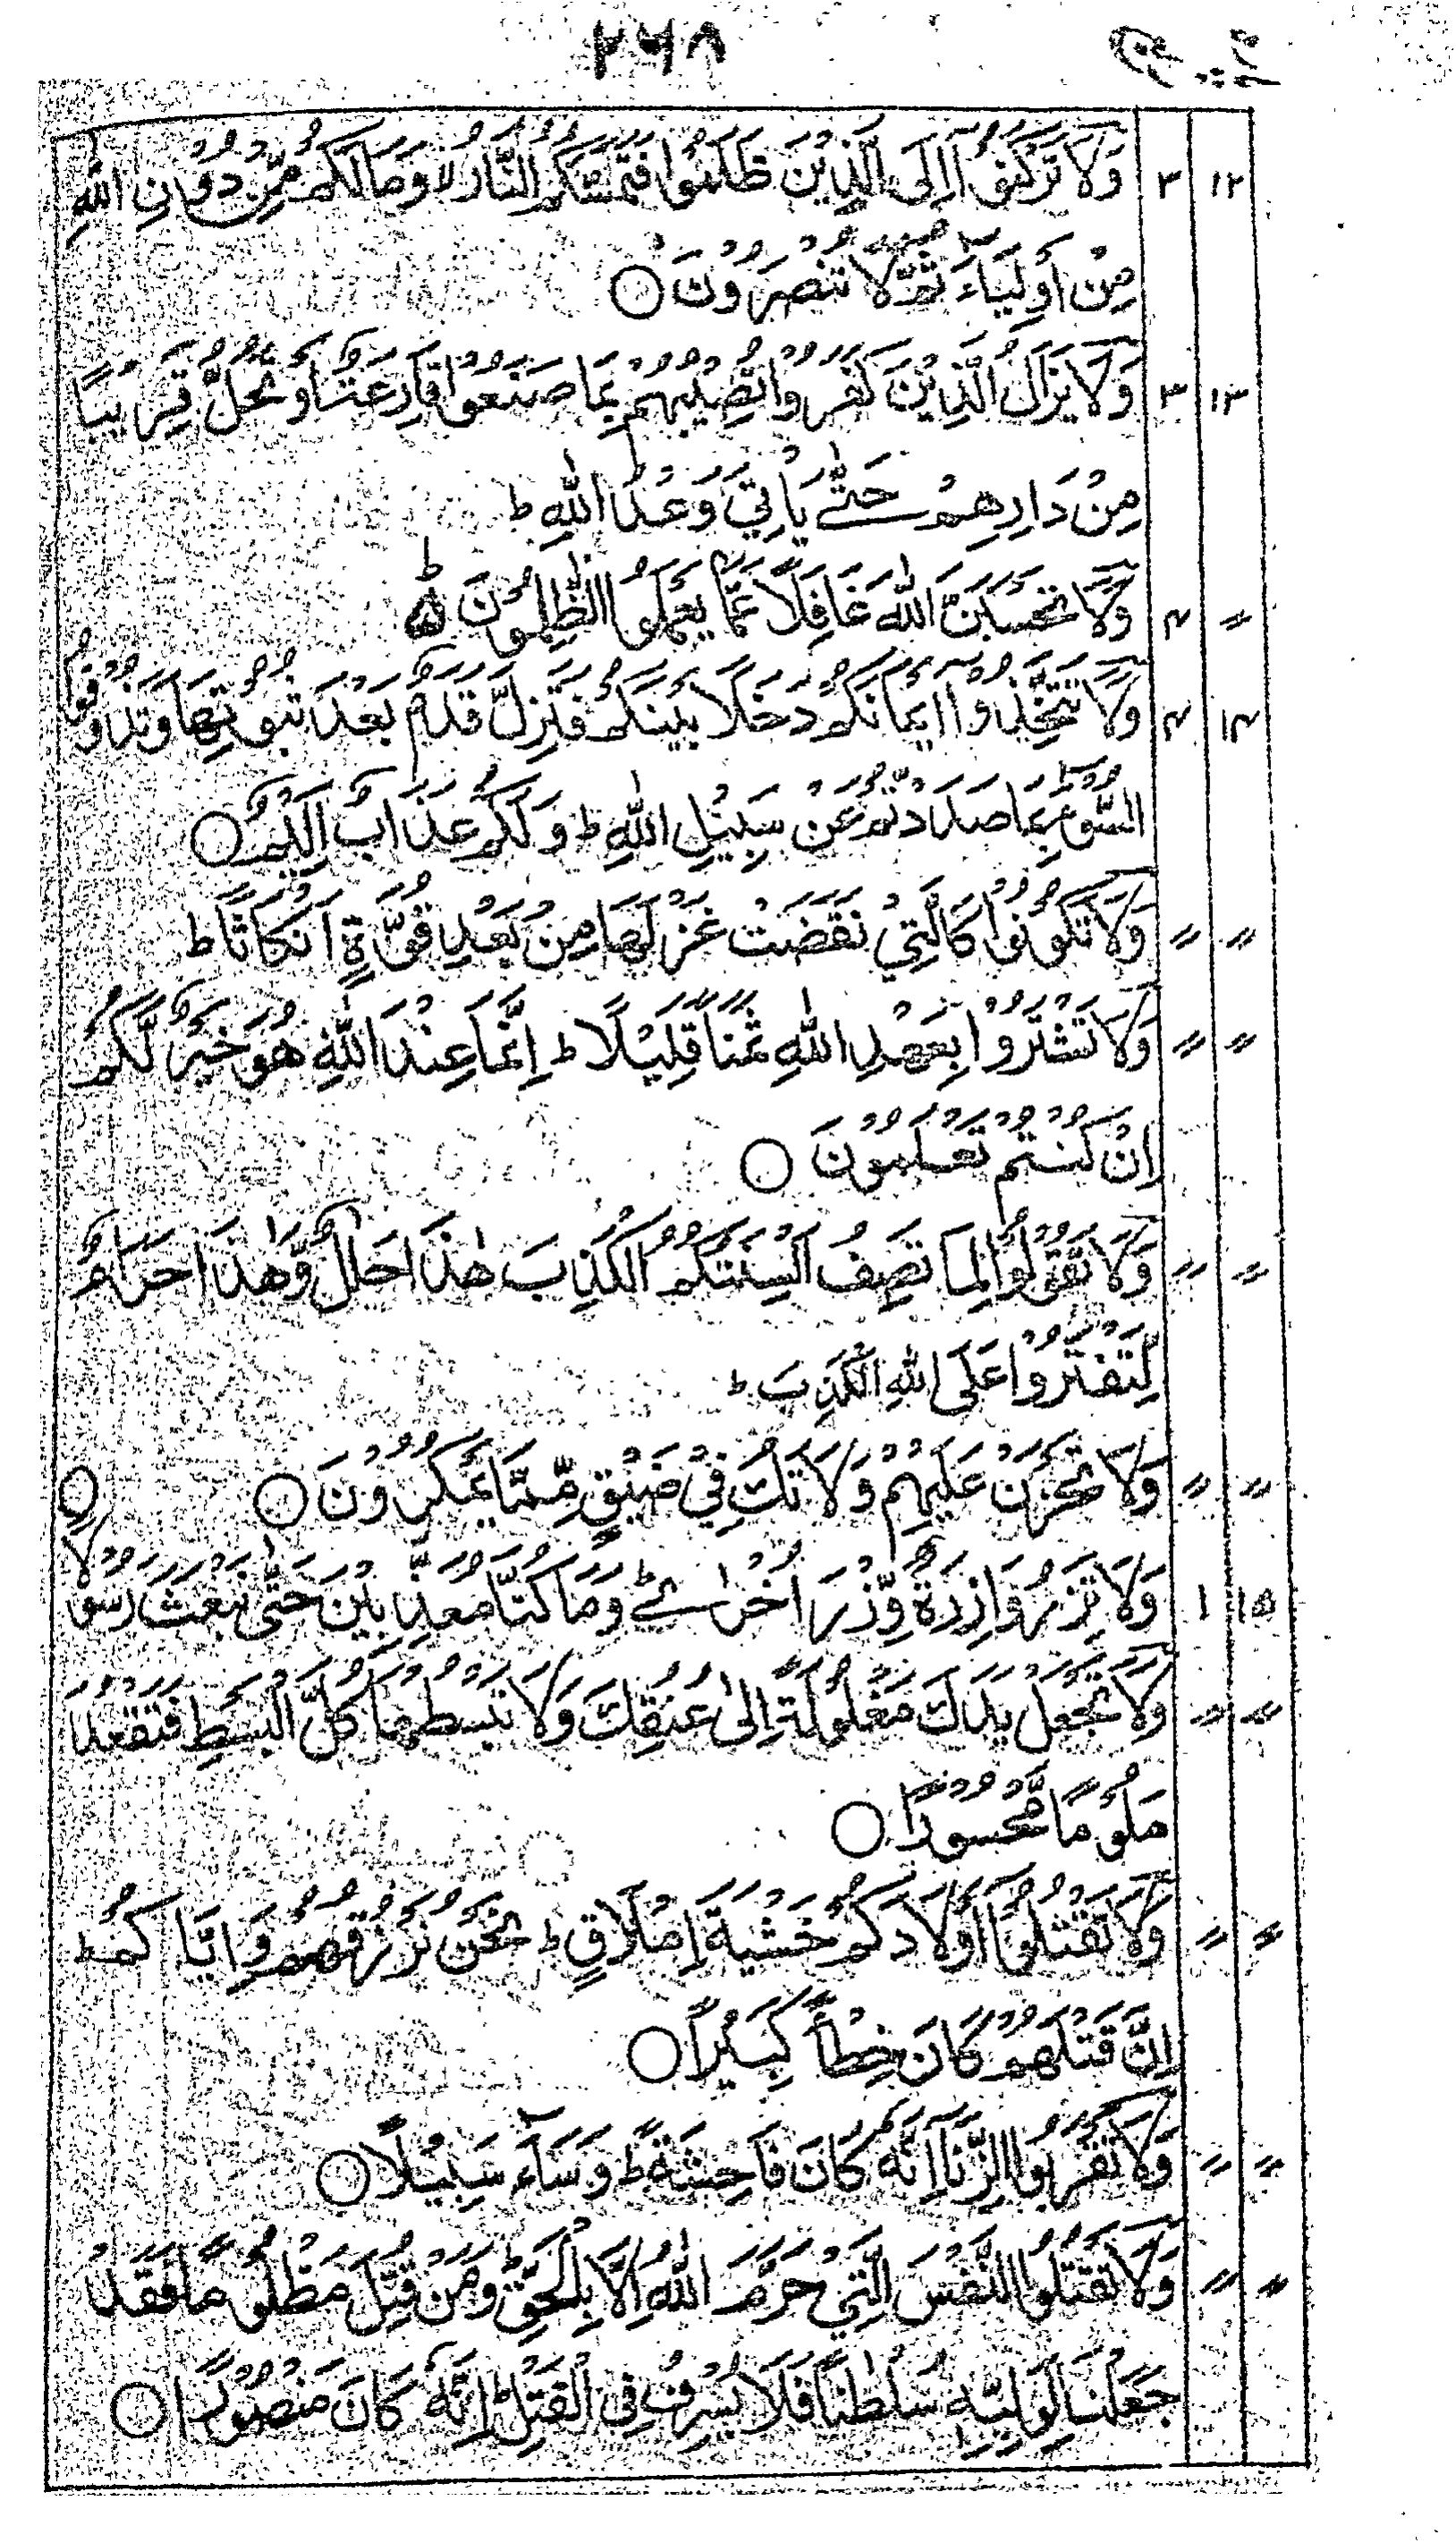 ۲۶۸
۱۲ ۳ وَلَا تَرْكَنُوْٓا اِلَى الَّذِيْنَ ظَلَمُوْا فَتَمَسَّكُمُ النَّارُ لا وَمَالَكُمْ مِّنْ دُوْنِ اللّٰهِ
مِنْ اَوْلِيَآءَ ثُمَّ لَا تُنْصَرُوْنَ ○
۱۳ ۳ وَلَا يَزَالُ الَّذِيْنَ كَفَرُوْا تُصِيْبُهُمْ بِمَا صَنَعُوْا قَارِعَةٌ اَوْ تَحُلُّ قَرِيْبًا
مِنْ دَارِهِمْ حَتّٰے يَاْتِيَ وَعْدُ اللّٰهِ ط
〃 ۴ وَلَا تَحْسَبَنَّ اللّٰهَ غَافِلًا عَمَّا يَعْمَلُوا الظّٰلِمُوْنَ ط
۱۴ ۴ وَلَا تَتَّخِذُوْٓا اَيْمَانَكُمْ دَخَلًا بَيْنَكُمْ فَتَزِلَّ قَدَمٌ بَعْدَ ثُبُوْتِهَا وَتَذُوْقُوا
السُّوْٓءَ بِمَا صَدَدْتُّمْ عَنْ سَبِيْلِ اللّٰهِ ط وَلَكُمْ عَذَابٌ اَلِيْمٌ ○
〃 〃 وَلَا تَكُوْنُوْا كَالَّتِيْ نَقَضَتْ غَزْلَهَا مِنْ بَعْدِ قُوَّةٍ اَنْكَاثًا ط
〃 〃 وَلَا تَشْتَرُوْا بِعَهْدِ اللّٰهِ ثَمَنًا قَلِيْلًا ط اِنَّمَا عِنْدَ اللّٰهِ هُوَ خَيْرٌ لَّكُمْ
اِنْ كُنْتُمْ تَعْلَمُوْنَ ○
〃 〃 وَلَا تَقُوْلُوْا لِمَا تَصِفُ اَلْسِنَتُكُمُ الْكَذِبَ هٰذَا حَلٰلٌ وَّهٰذَا حَرَامٌ
لِّتَفْتَرُوْا عَلَى اللّٰهِ الْكَذِبَ ط
〃 〃 وَلَا تَحْزَنْ عَلَيْهِمْ وَلَا تَكُ فِيْ ضَيْقٍ مِّمَّا يَمْكُرُوْنَ ○
۱۵ ۱ وَلَا تَزِرُ وَازِرَةٌ وِّزْرَ اُخْرٰے ط وَمَا كُنَّا مُعَذِّبِيْنَ حَتّٰى نَبْعَثَ رَسُوْلًا ○
〃 〃 وَلَا تَجْعَلْ يَدَكَ مَغْلُوْلَةً اِلٰى عُنُقِكَ وَلَا تَبْسُطْهَا كُلَّ الْبَسْطِ فَتَقْعُدَ
مَلُوْمًا مَّحْسُوْرًا ○
〃 〃 وَلَا تَقْتُلُوْٓا اَوْلَادَكُمْ خَشْيَةَ اِمْلَاقٍ ط نَحْنُ نَرْزُقُهُمْ وَاِيَّاكُمْ ط
اِنَّ قَتْلَهُمْ كَانَ خِطْاً كَبِيْرًا ○
〃 〃 وَلَا تَقْرَبُوا الزِّنَآ اِنَّهٗ كَانَ فَاحِشَةً ط وَسَآءَ سَبِيْلًا ○
〃 〃 وَلَا تَقْتُلُوا النَّفْسَ الَّتِيْ حَرَّمَ اللّٰهُ اِلَّا بِالْحَقِّ ط وَمَنْ قُتِلَ مَظْلُوْمًا فَقَدْ
جَعَلْنَا لِوَلِيِّهٖ سُلْطٰنًا فَلَا يُسْرِفْ فِى الْقَتْلِ ط اِنَّهٗ كَانَ مَنْصُوْرًا ○